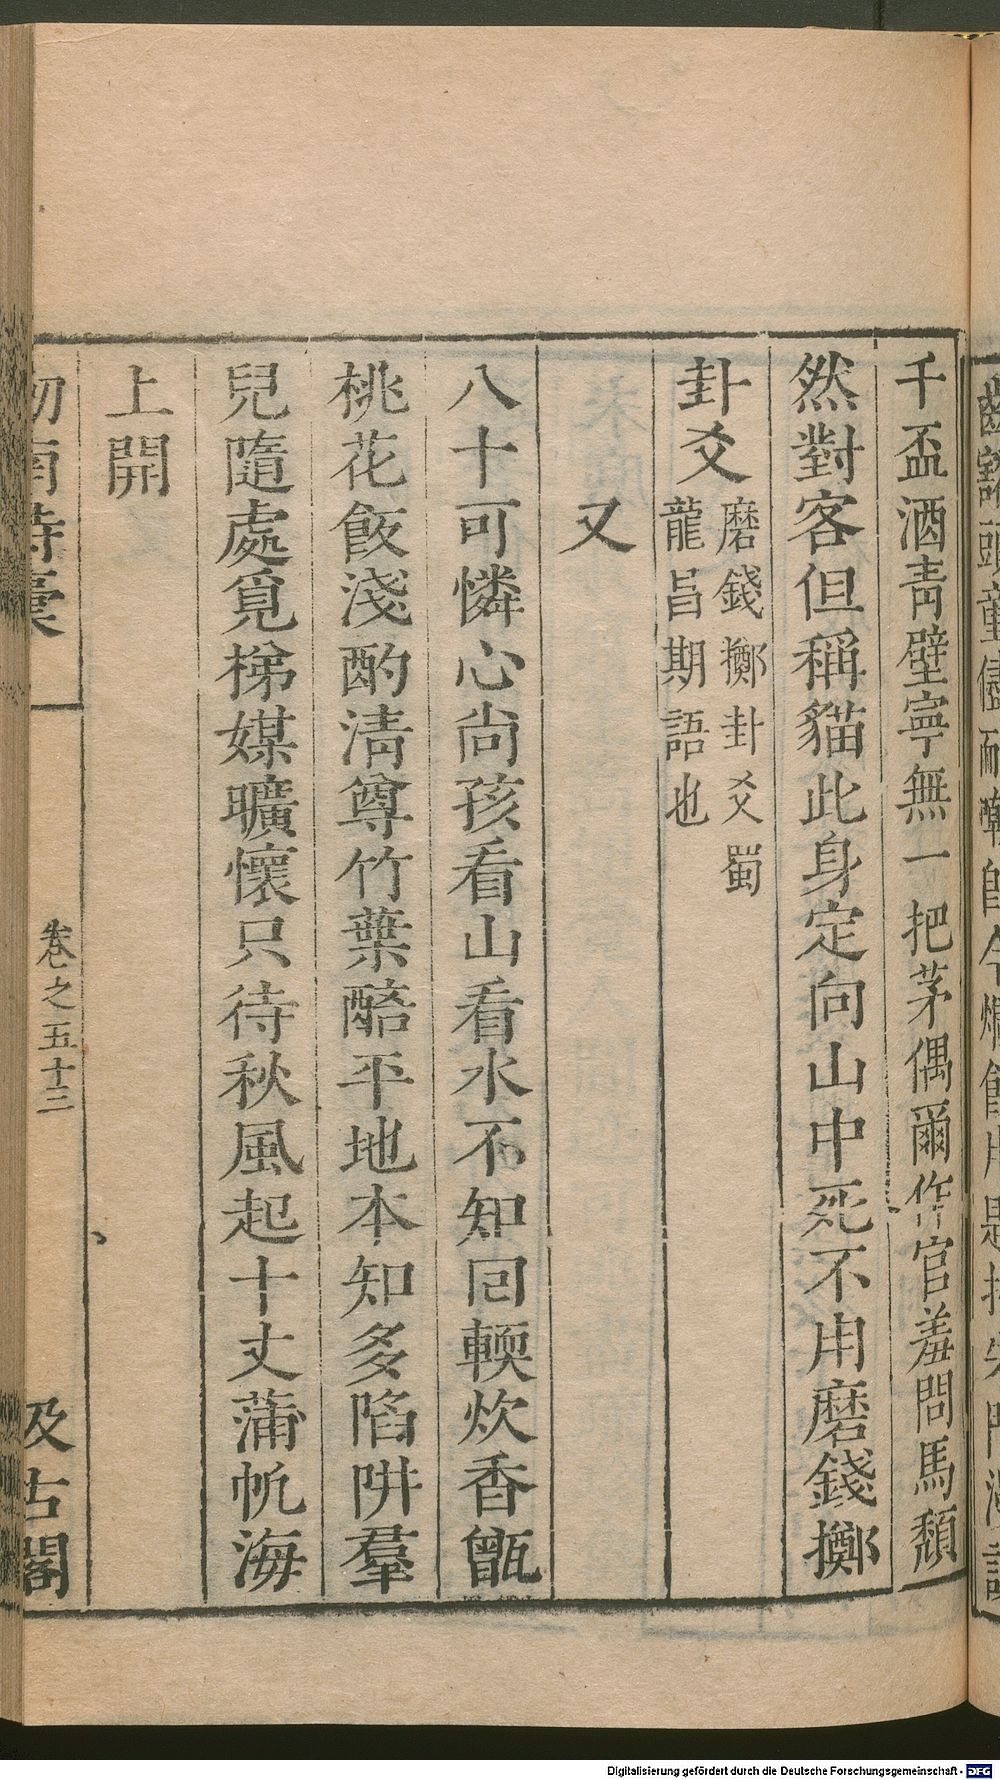 千盃酒青壁寧無一把茅偶爾作官羞問馬頹
然對客但稱貓此身定向山中死不用磨錢擲
卦爻磨錢擲卦爻蜀
龍昌期語也
又
八十可憐心尚孩看山看水不知回輭炊香甑
桃花飯淺酌清尊竹葉醅平地本知多陷阱羣
兒隨處覓梯媒曠懷只待秋風起十丈蒲帆海
上開
卷之五十三
汲古閣
Digitalisierung gefördert durch die Deutsche Forschungsgemeinschaft - DFG